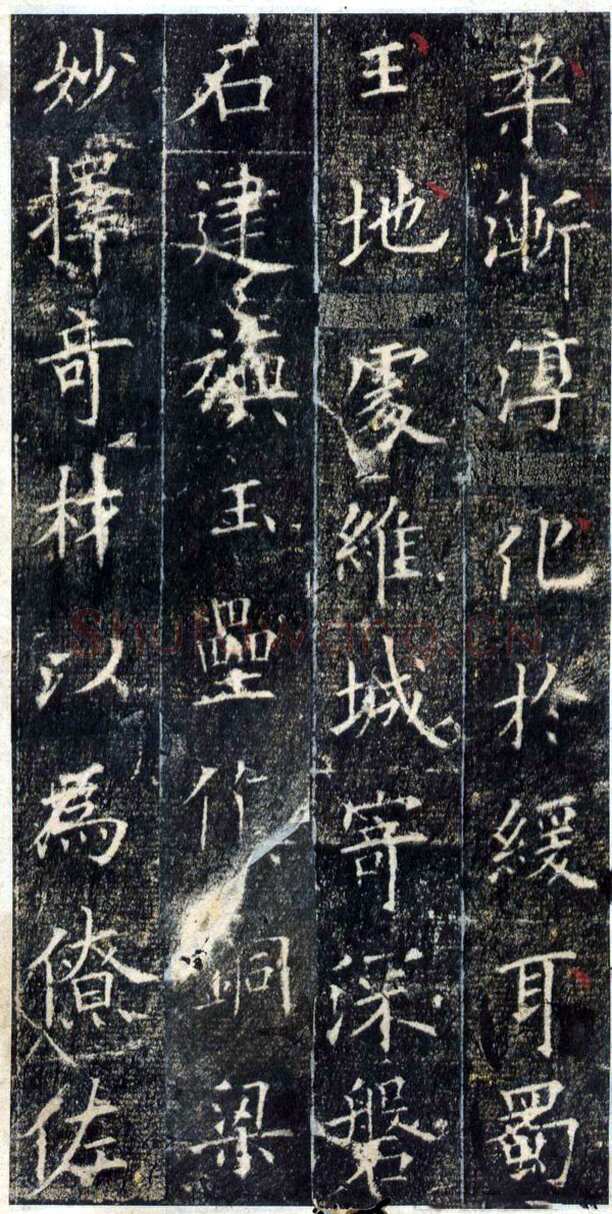 柔漸淳化於緩耳蜀
王地處維城寄深磐
石建旟玉壘作銅梁
妙擇奇材以為僚佐